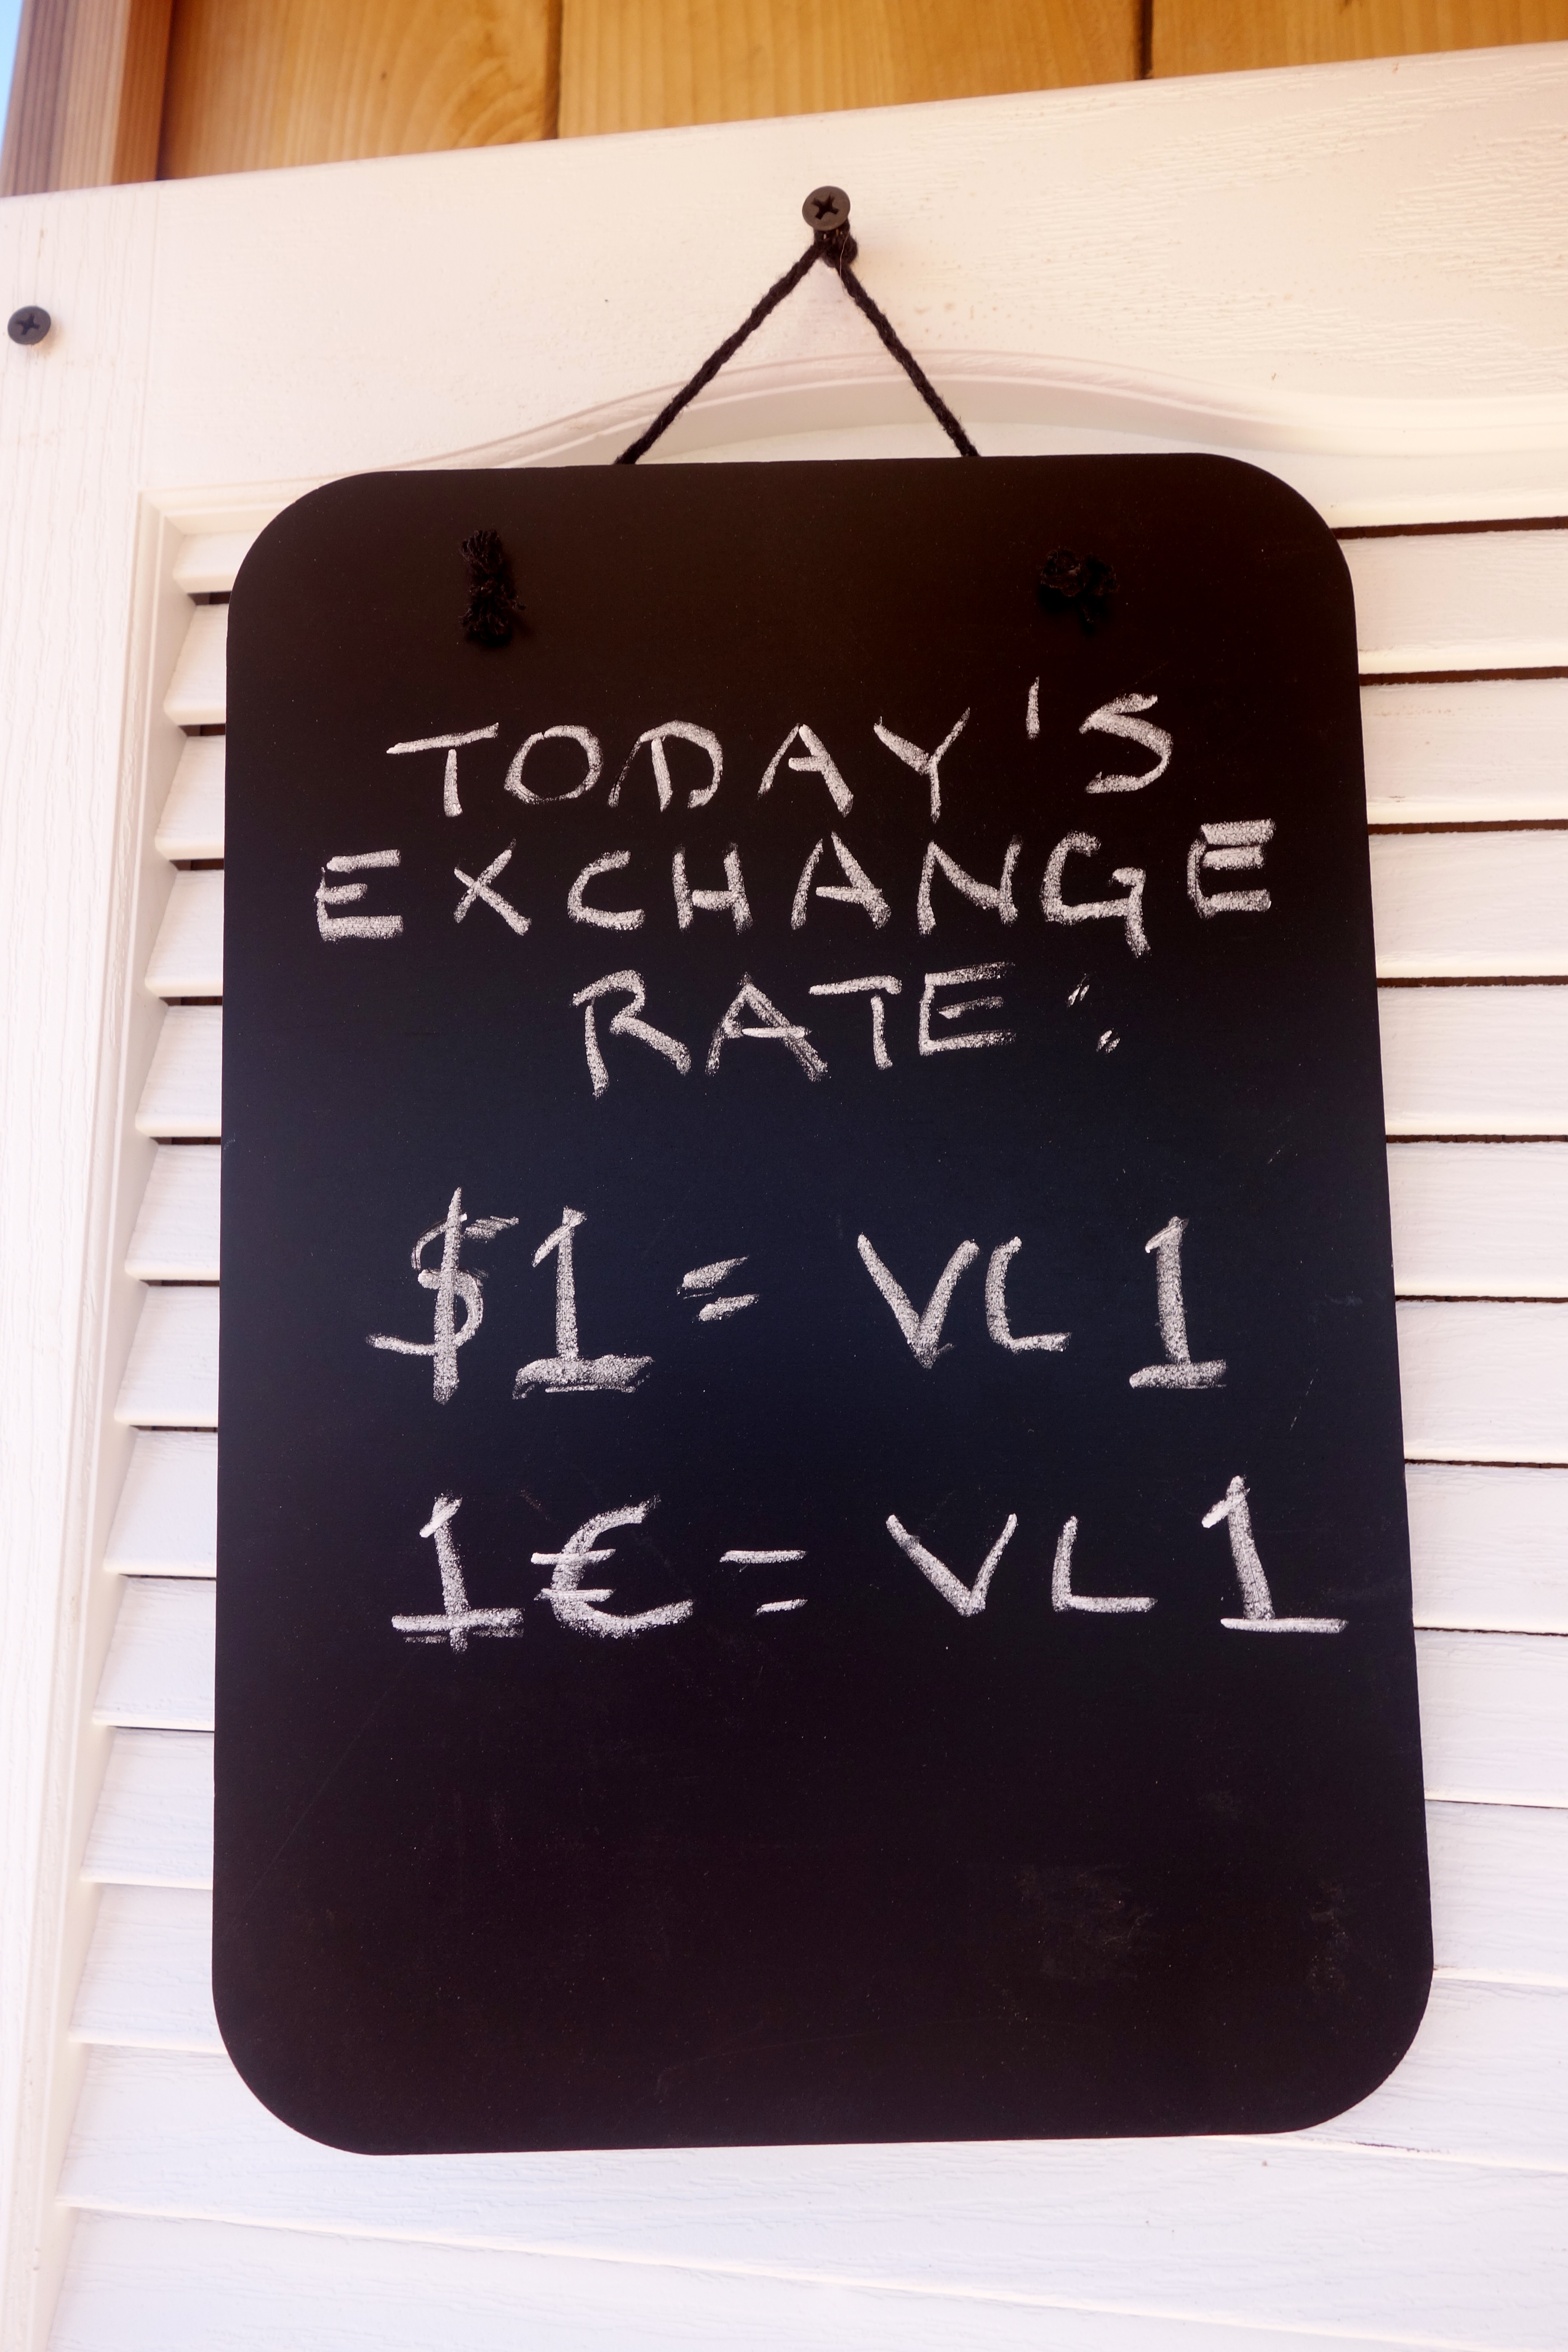 TODAY'S
EXCHANGE
RATE:
$1 = VL 1
1€ = VL 1